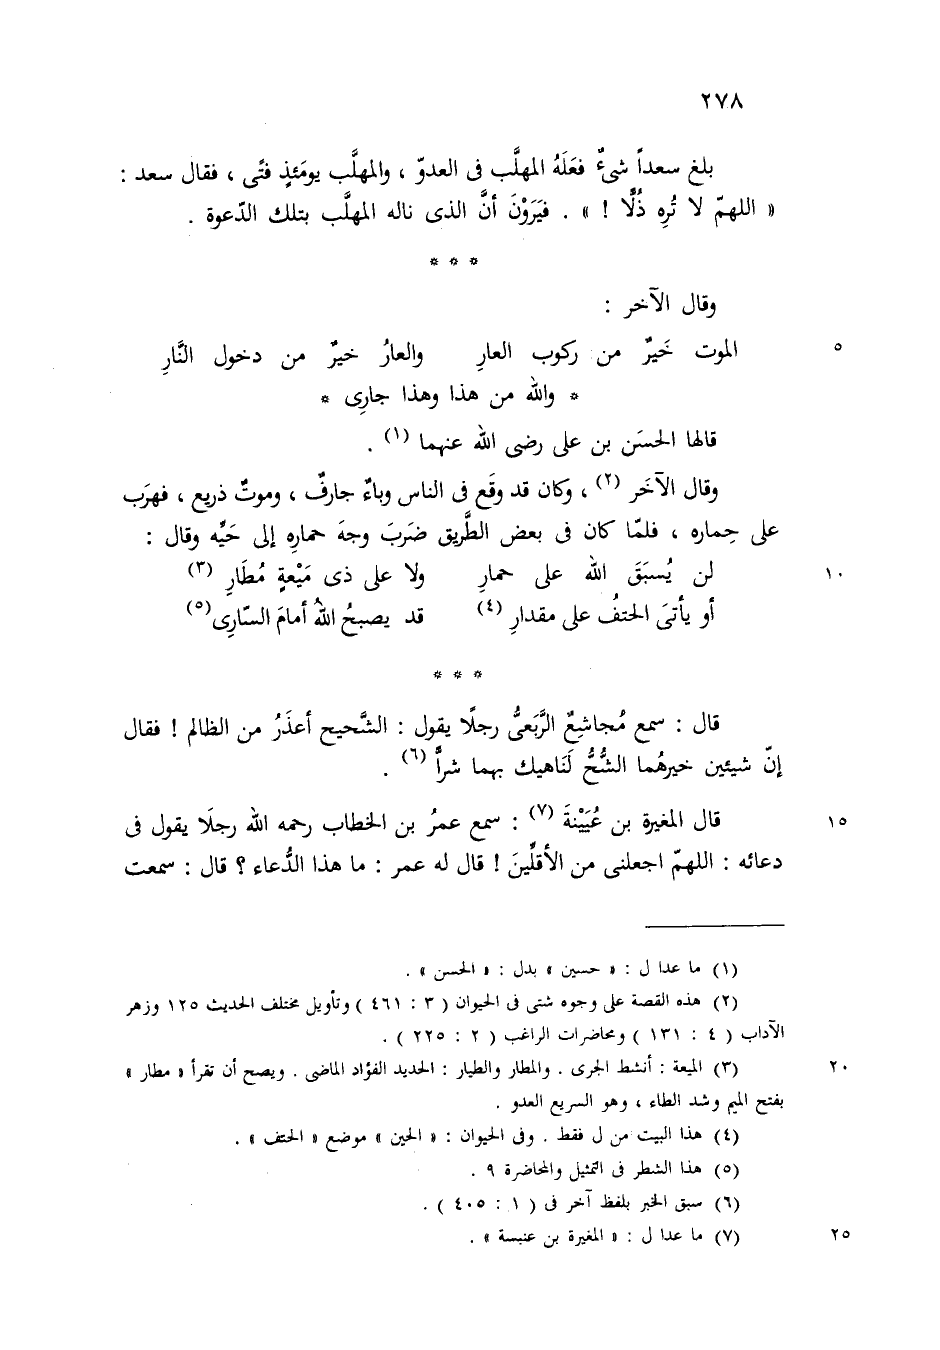 ٢٧٨
بلغ سعداً شىءٌ فعَلَهُ المهلَّب فى العدوّ ، والمهلَّب يومَئذٍ فتًى ، فقال سعد :
« اللهمّ لا تُرِه ذُلًّا ! » . فيَرَوْنَ أنَّ الذى ناله المهلَّب بتلك الدّعوة .
* * *
وقال الآخر :
الموت خَيرٌ من ركوب العارِ والعارُ خيرٌ من دخول النَّارِ ٥
* والله من هذا وهذا جارِى *
قالها الحسَن بن على رضى الله عنهما (١) .
وقال الآخَر (٢) ، وكان قد وقَع فى الناس وباءٌ جارفٌ ، وموتٌ ذريع ، فهرَب
على حِماره ، فلمّا كان فى بعض الطَّريق ضرَبَ وجهَ حمارِه إلى حَيِّه وقال :
لن يُسبَقَ الله على حمارِ ولا على ذى مَيْعةٍ مُطَارِ (٣) ١٠
أو يأتىَ الحتفُ على مقدارِ (٤) قد يصبحُ اللهُ أمامَ السّارِى (٥)
* * *
قال : سمع مُجاشِعٌ الرَّبَعىُّ رجلًا يقول : الشَّحيح أعذَرُ من الظالم ! فقال
إنّ شيئين خيرهُما الشُّحُّ لَنَاهيك بهما شراًّ (٦) .
قال المغيرة بن عُيَيْنةَ (٧) : سمع عمرُ بن الخطاب رحمه الله رجلًا يقول فى ١٥
دعائه : اللهمّ اجعلنى من الأقلِّينَ ! قال له عمر : ما هذا الدُّعاء ؟ قال : سمعت
(١) ما عدا ل : « حسين » بدل : « الحسن » .
(٢) هذه القصة على وجوه شتى فى الحيوان ( ٣ : ٤٦١ ) وتأويل مختلف الحديث ١٢٥ وزهر
الآداب ( ٤ : ١٣١ ) ومحاضرات الراغب ( ٢ : ٢٢٥ ) .
(٣) الميعة : أنشط الجرى . والمطار والطيار : الحديد الفؤاد الماضى . ويصح أن تقرأ « مطار » ٢٠
بفتح الميم وشد الطاء ، وهو السريع العدو .
(٤) هذا البيت من ل فقط . وفى الحيوان : « الحين » موضع « الحتف » .
(٥) هذا الشطر فى التمثيل والمحاضرة ٩ .
(٦) سبق الخبر بلفظ آخر فى ( ١ : ٤٠٥ ) .
(٧) ما عدا ل : « المغيرة بن عنبسة » . ٢٥